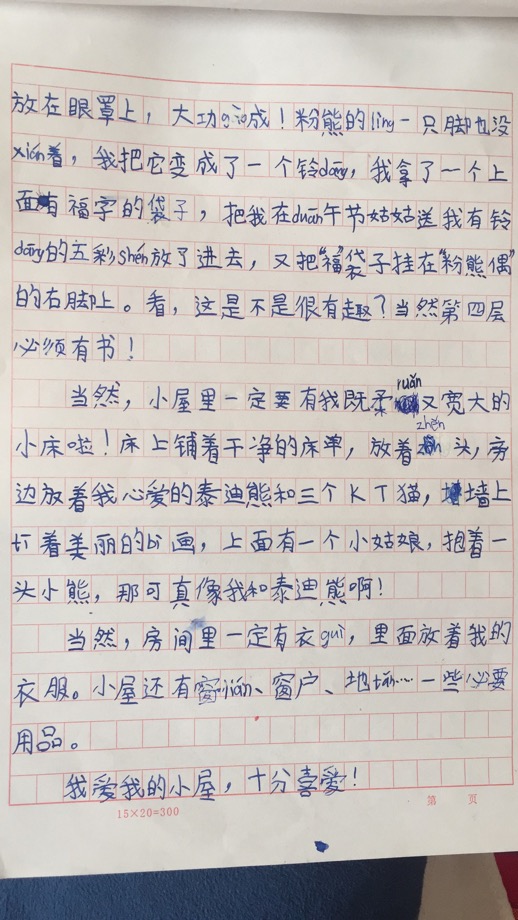 放在眼罩上，大功gào成！粉熊的lìng一只脚也没
xián着，我把它变成了一个铃dāng，我拿了一个上
面有福字的袋子，把我在duān午节姑姑送我有铃
dāng的五彩shéng放了进去，又把“福”袋子挂在“粉熊偶”
的右脚上。看，这是不是很有趣？当然第四层
必须有书！
当然，小屋里一定要有我既柔ruǎn又宽大的
小床啦！床上铺着干净的床单，放着zhěn头，旁
边放着我心爱的泰迪熊和三个KT猫，墙上
钉着美丽的bì画，上面有一个小姑娘，抱着一
头小熊，那可真像我和泰迪熊啊！
当然，房间里一定有衣guì，里面放着我的
衣服。小屋还有窗lián、窗户、地tǎn……一些必要
用品。
我爱我的小屋，十分喜爱！
15×20=300
第 页